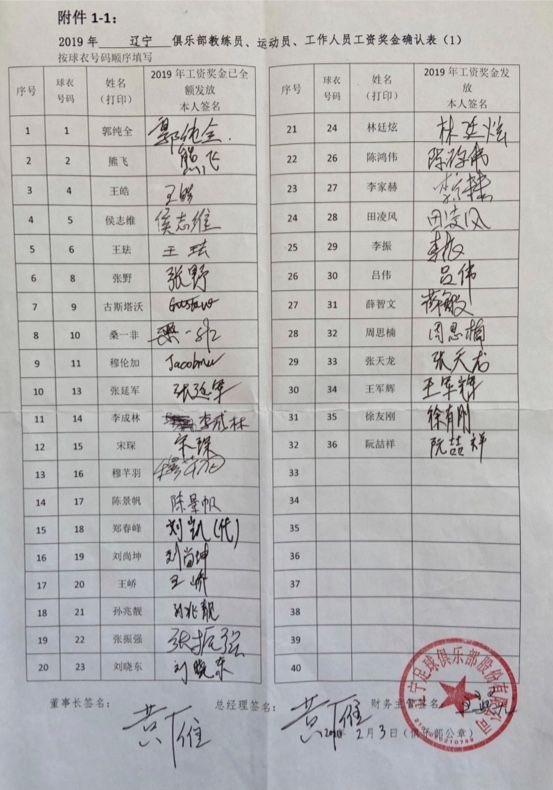 附件 1-1:
2019 年 辽宁 俱乐部教练员、运动员、工作人员工资奖金确认表（1）
按球衣号码顺序填写
序号 球衣号码 姓名（打印） 2019 年工资奖金已全额发放 本人签名
1 1 郭纯全 郭纯全
2 2 熊飞 熊飞
3 4 王皓 王皓
4 5 侯志维 侯志维
5 6 王珐 王珐
6 8 张野 张野
7 9 古斯塔沃 Gustavo
8 10 桑一非 桑一非
9 11 穆伦加
10 13 张延军 张延军
11 14 李成林 李成林
12 15 宋琛 宋琛
13 16 穆芊羽
14 17 陈景帆 陈景帆
15 18 郑春峰 刘凯(代)
16 19 刘尚坤 刘尚坤
17 20 王峤 王峤
18 21 孙兆靓 孙兆靓
19 22 张振强 张振强
20 23 刘晓东 刘晓东
序号 球衣号码 姓名（打印） 2019 年工资奖金发放 本人签名
21 24 林廷炫 林廷炫
22 26 陈鸿伟
23 27 李家赫
24 28 田凌风 田凌风
25 29 李振 李振
26 30 吕伟 吕伟
27 31 薛智文
28 32 周思楠 周思楠
29 33 张天龙 张天龙
30 34 王军辉 王军辉
31 35 徐友刚 徐有刚
32 36 阮喆祥 阮喆祥
33
34
35
36
37
38
39
40
董事长签名： 总经理签名： 财务主管签名
黄雁 黄雁
2月3日（俱乐部公章）
宁足球俱乐部股份有限公司